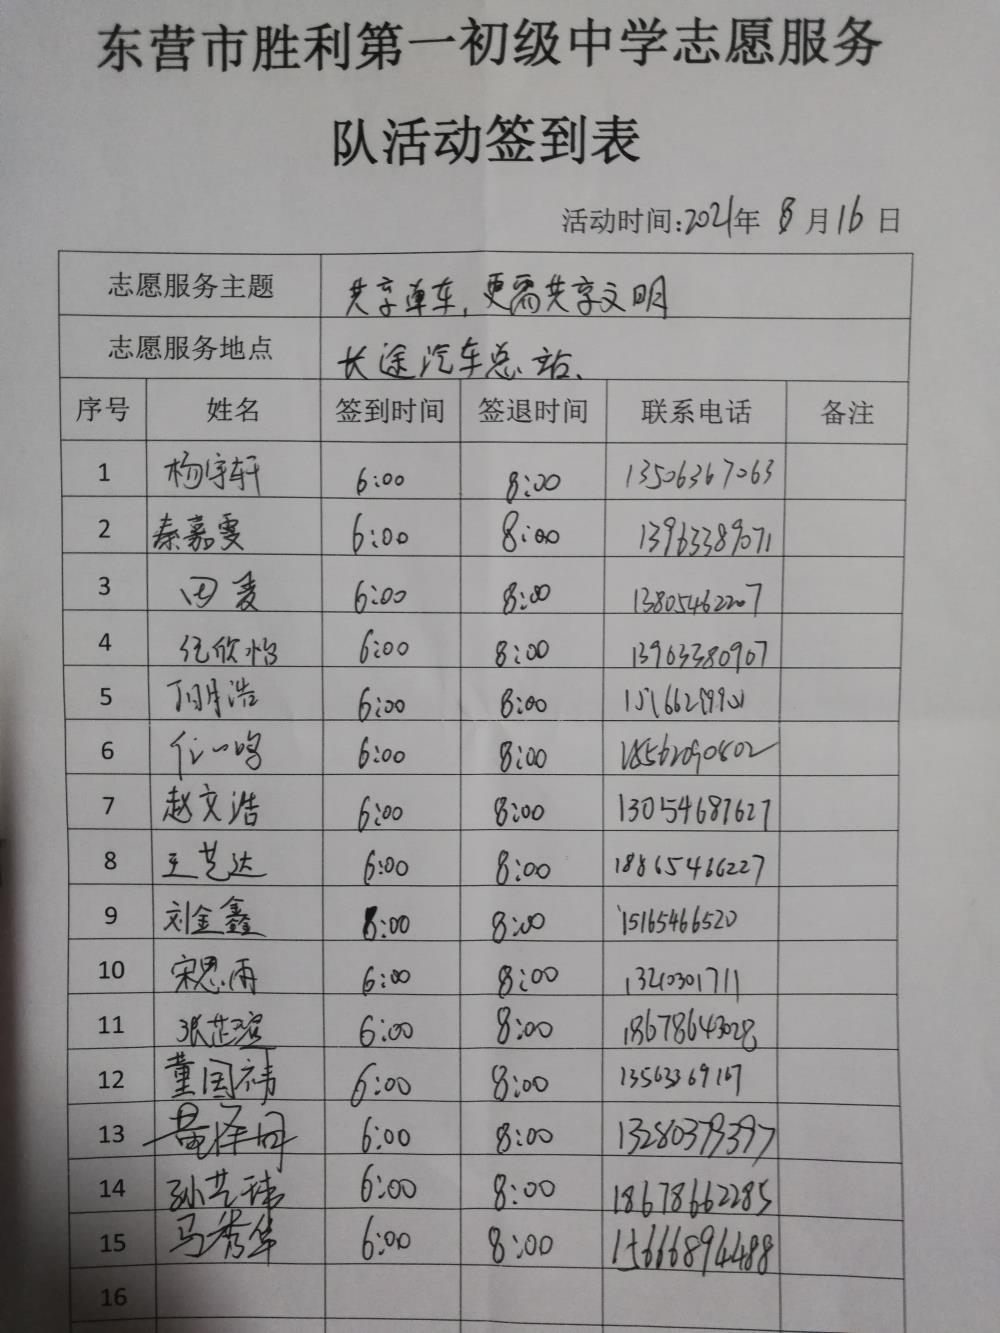 东营市胜利第一初级中学志愿服务
队活动签到表
活动时间:2021年 8 月16 日
志愿服务主题 共享单车,更需共享文明
志愿服务地点 长途汽车总站、
序号 姓名 签到时间 签退时间 联系电话 备注
1 杨宇轩 6:00 8:00 13506367063
2 秦嘉雯 6:00 8:00 13963389071
3 田麦 6:00 8:00 13805462207
4 6:00 8:00 13963380907
5 6:00 8:00
6 任一鸣 6:00 8:00 18562090802
7 赵文浩 6:00 8:00 13054687627
8 王艺达 6:00 8:00 18865466227
9 刘金鑫 8:00 8:00 15165466520
10 宋思雨 6:00 8:00
11 张芷瑄 6:00 8:00 18678643028
12 董国祎 6:00 8:00
13 6:00 8:00 13280379397
14 孙艺玮 6:00 8:00 18678662285
15 马秀华 6:00 8:00 15666894488
16